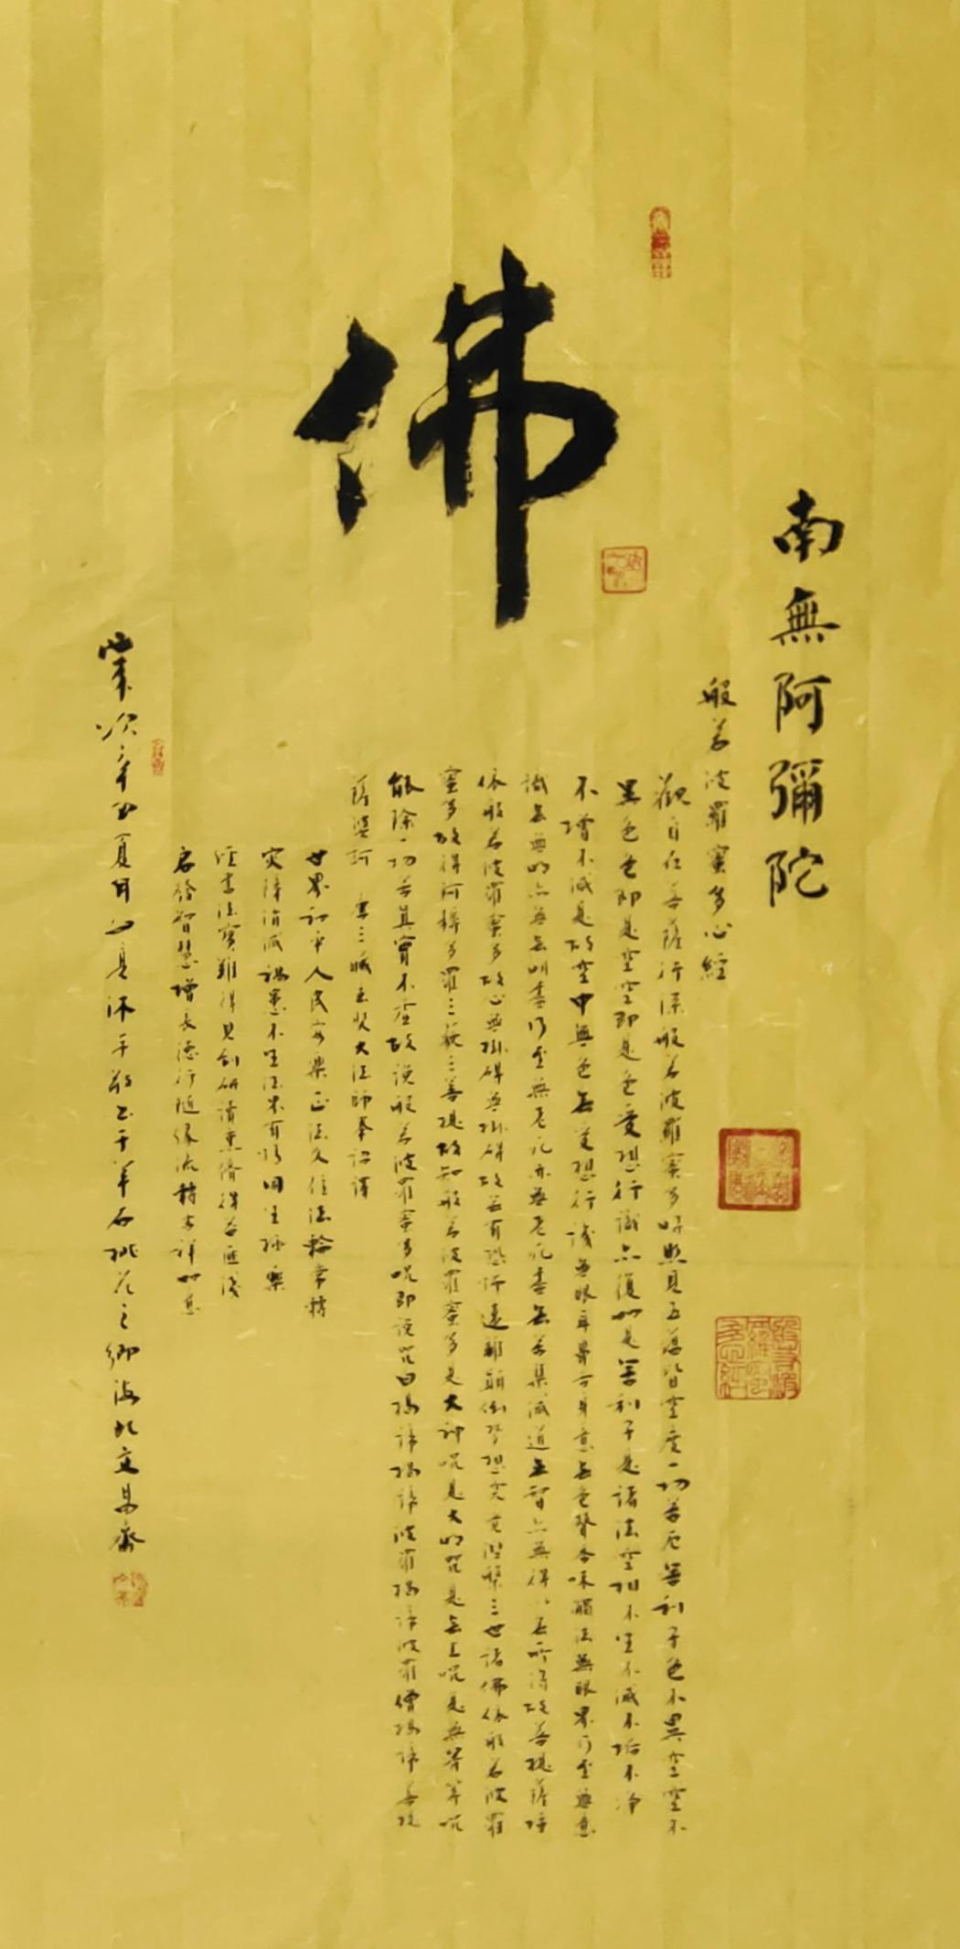 佛
南無阿彌陀
般若波羅蜜多心經
觀自在菩薩行深般若波羅蜜多時照見五蘊皆空度一切苦厄舍利子色不異空空不
異色色即是空空即是色受想行識亦復如是舍利子是諸法空相不生不滅不垢不淨
不增不減是故空中無色無受想行識無眼耳鼻舌身意無色聲香味觸法無眼界乃至無意
識無無明亦無無明盡乃至無老死亦無老死盡無苦集滅道無智亦無得以無所得故菩提薩埵
依般若波羅蜜多故心無掛礙無掛礙故無有恐怖遠離顛倒夢想究竟涅槃三世諸佛依般若波羅
蜜多故得阿耨多羅三藐三菩提故知般若波羅蜜多是大神咒是大明咒是無上咒是無等等咒
能除一切苦真實不虛故說般若波羅蜜多咒即說咒曰揭諦揭諦波羅揭諦波羅僧揭諦菩提
薩婆訶 唐三藏玄奘大法師奉詔譯
世界和平人民安樂正法久住法輪常轉
災障消滅禍患不生
經書法寶難得見
啟發智慧增長德行隨緣流轉吉祥如意
歲次辛丑夏月